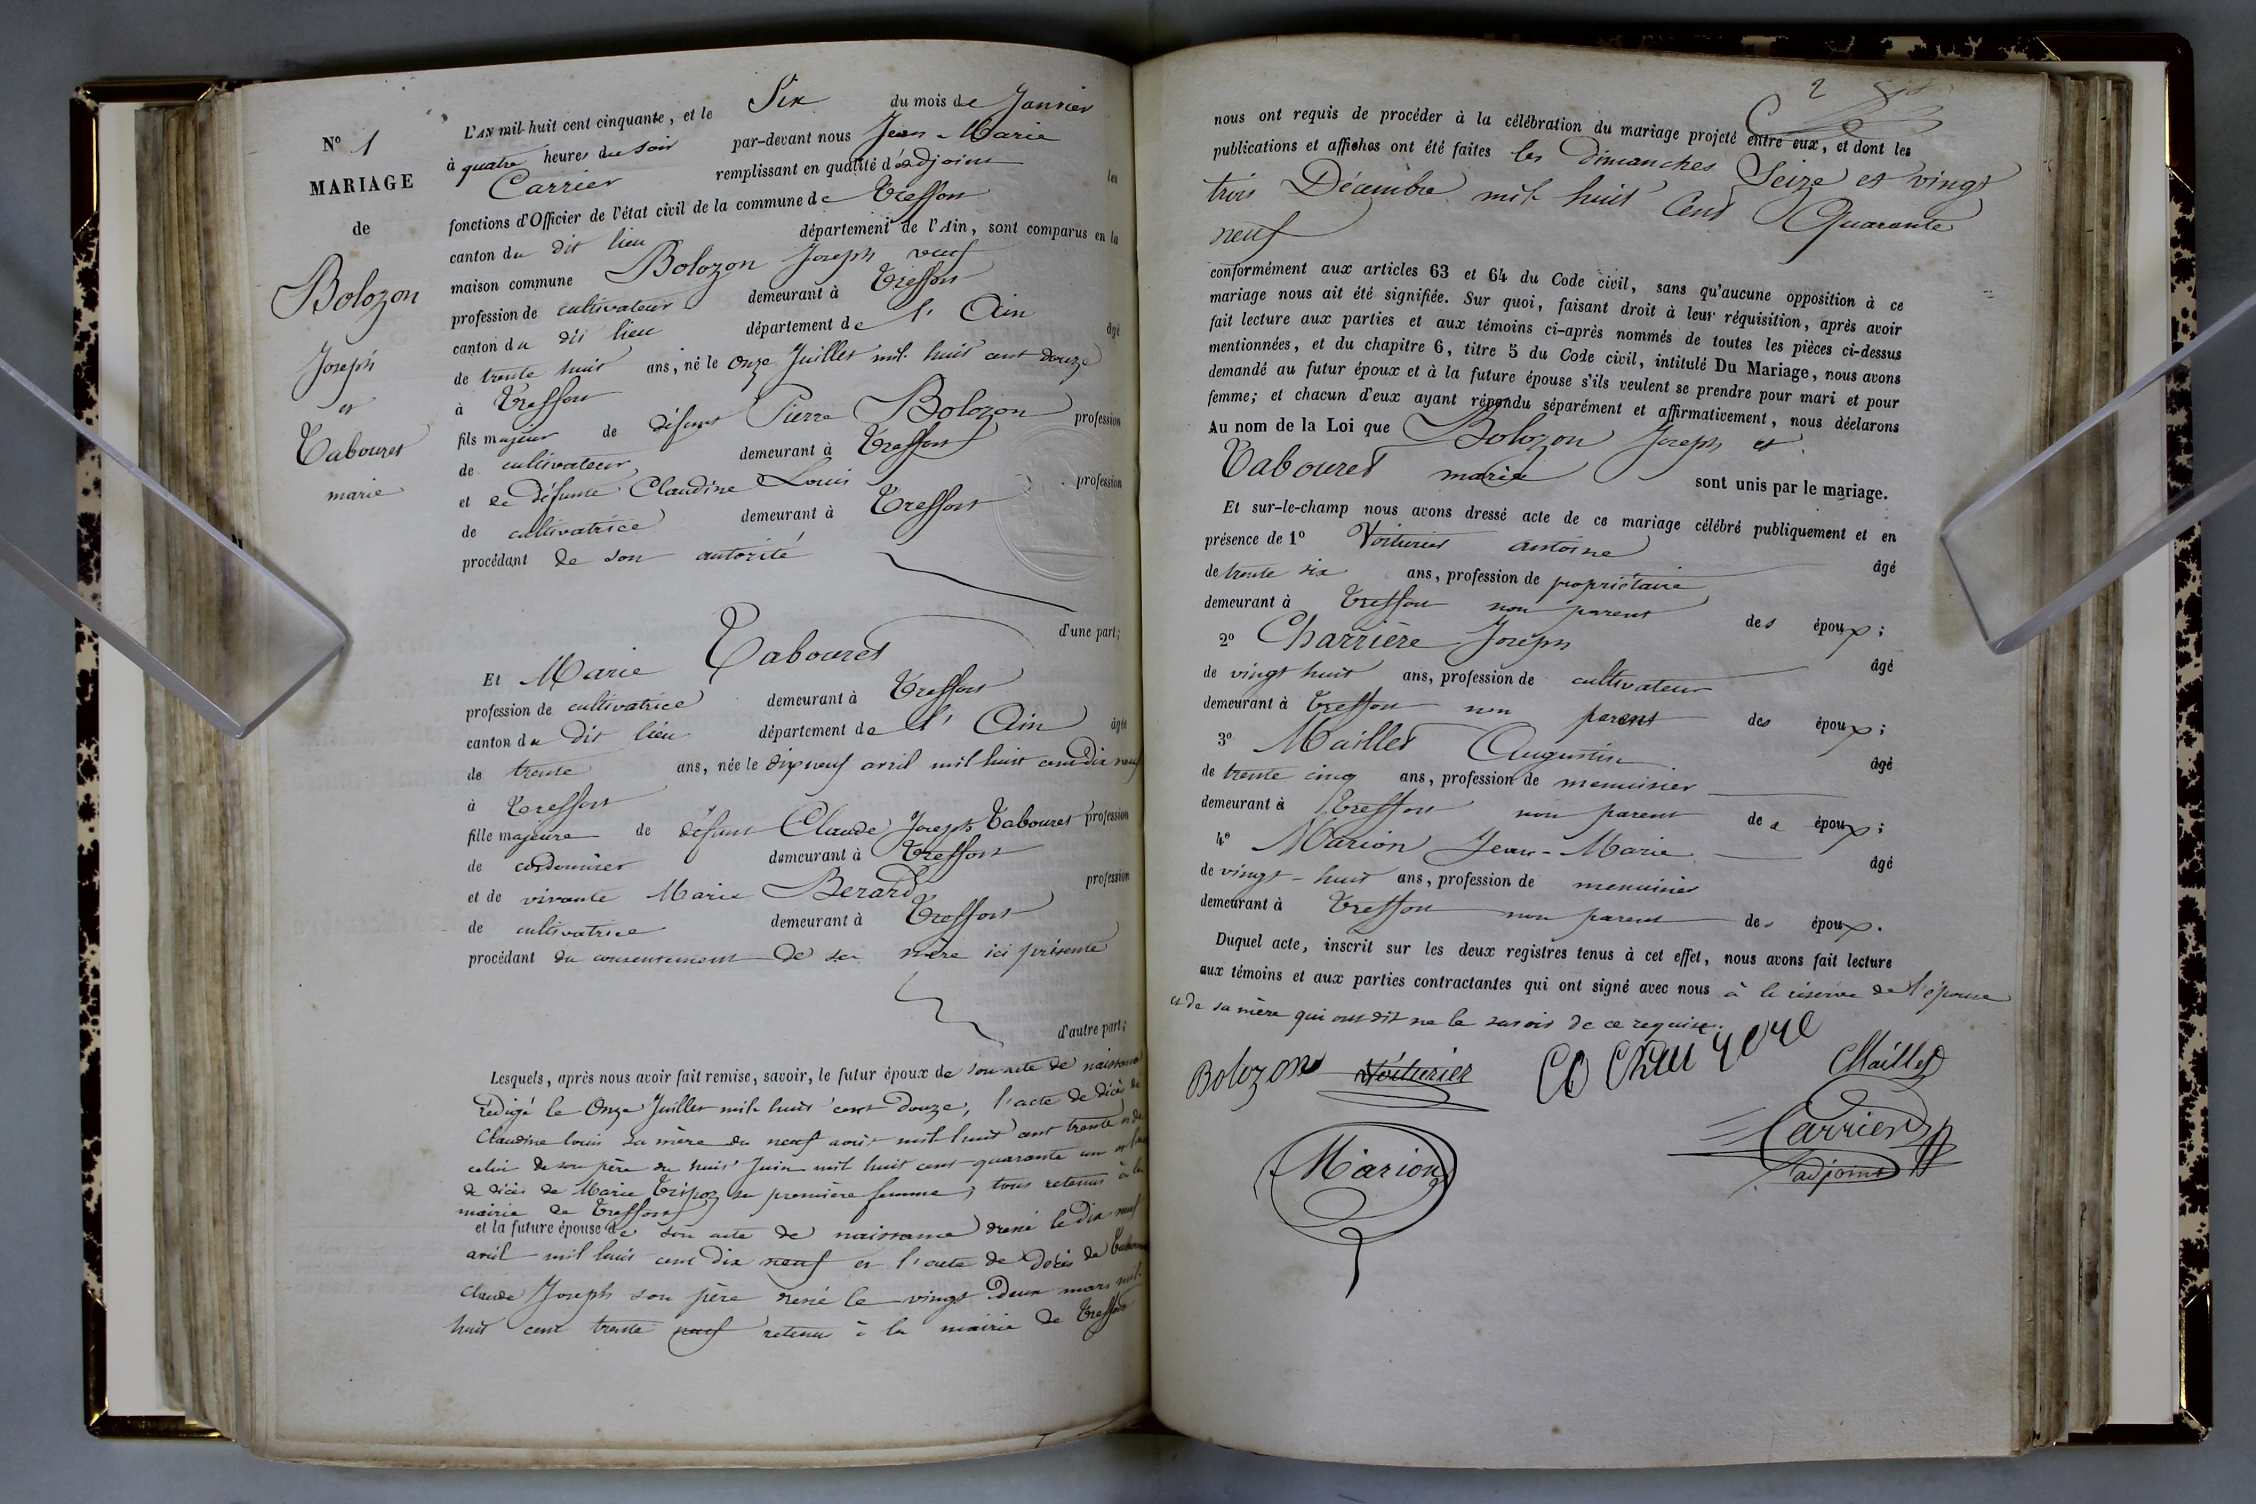 N° 1
MARIAGE
de
Bolozon
Joseph
et
Tabouret
marie
L'AN mil-huit cent cinquante, et le Six du mois de Janvier
à quatre heures du soir par-devant nous Jean-Marie
Carrier remplissant en qualité d'adjoint les
fonctions d'Officier de l'état civil de la commune de Treffort
canton du dit lieu département de l'Ain, sont comparus en la
maison commune Bolozon Joseph veuf
profession de cultivateur demeurant à Treffort
canton du dit lieu département de l'Ain âgé
de trente huit ans, né le onze Juillet mil huit cent douze
à Treffort
fils majeur de défunt Pierre Bolozon profession
de cultivateur demeurant à Treffort
et de défunte Claudine Louis profession
de cultivatrice demeurant à Treffort
procédant de son autorité
d'une part;
Et Marie Tabouret
profession de cultivatrice demeurant à Treffort
canton du dit lieu département de l'Ain âgée
de trente ans, née le dix neuf avril mil huit cent dix neuf
à Treffort
fille majeure de défunt Claude Joseph Tabouret profession
de cordonnier demeurant à Treffort
et de vivante Marie Berard profession
de cultivatrice demeurant à Treffort
procédant du consentement de sa mère ici présente
d'autre part;
Lesquels, après nous avoir fait remise, savoir, le futur époux de son acte de naissance
rédigé le Onze Juillet mil huit cent Douze, l'acte de décès de
Claudine Louis sa mère du neuf août mil huit cent trente et de
celui de son père du huit Juin mil huit cent quarante un et l'acte
de décès de Marie Tripoz sa première femme, tous retenus à la
mairie de Treffort
et la future épouse de son acte de naissance dressé le dix neuf
avril mil huit cent dix neuf et l'acte de décès de Tabouret
Claude Joseph son père dressé le vingt deux mars mil
huit cent trente neuf retenu à la mairie de Treffort
2
nous ont requis de procéder à la célébration du mariage projeté entre eux, et dont les
publications et affiches ont été faites les dimanches Seize et vingt
trois Décembre mil huit Cent Quarante
neuf
conformément aux articles 63 et 64 du Code civil, sans qu'aucune opposition à ce
mariage nous ait été signifiée. Sur quoi, faisant droit à leur réquisition, après avoir
fait lecture aux parties et aux témoins ci-après nommés de toutes les pièces ci-dessus
mentionnées, et du chapitre 6, titre 5 du Code civil, intitulé Du Mariage, nous avons
demandé au futur époux et à la future épouse s'ils veulent se prendre pour mari et pour
femme; et chacun d'eux ayant répondu séparément et affirmativement, nous déclarons
Au nom de la Loi que Bolozon Joseph et
Tabouret marie sont unis par le mariage.
Et sur-le-champ nous avons dressé acte de ce mariage célébré publiquement et en
présence de 1° Voiturier antoine âgé
de trente six ans, profession de propriétaire
demeurant à Treffort non parent des époux;
2° Charrière Joseph âgé
de vingt huit ans, profession de cultivateur
demeurant à Treffort non parent des époux;
3° Maillet Augustin âgé
de trente cinq ans, profession de menuisier
demeurant à Treffort non parent des époux;
4° Marion Jean-Marie âgé
de vingt-huit ans, profession de menuisier
demeurant à Treffort non parent des époux.
Duquel acte, inscrit sur les deux registres tenus à cet effet, nous avons fait lecture
aux témoins et aux parties contractantes qui ont signé avec nous à la réserve de l'épouse
et de sa mère qui ont dit ne le savoir de ce requise.
Bolozon Voiturier Maillet
Carrier
Marion adjoint